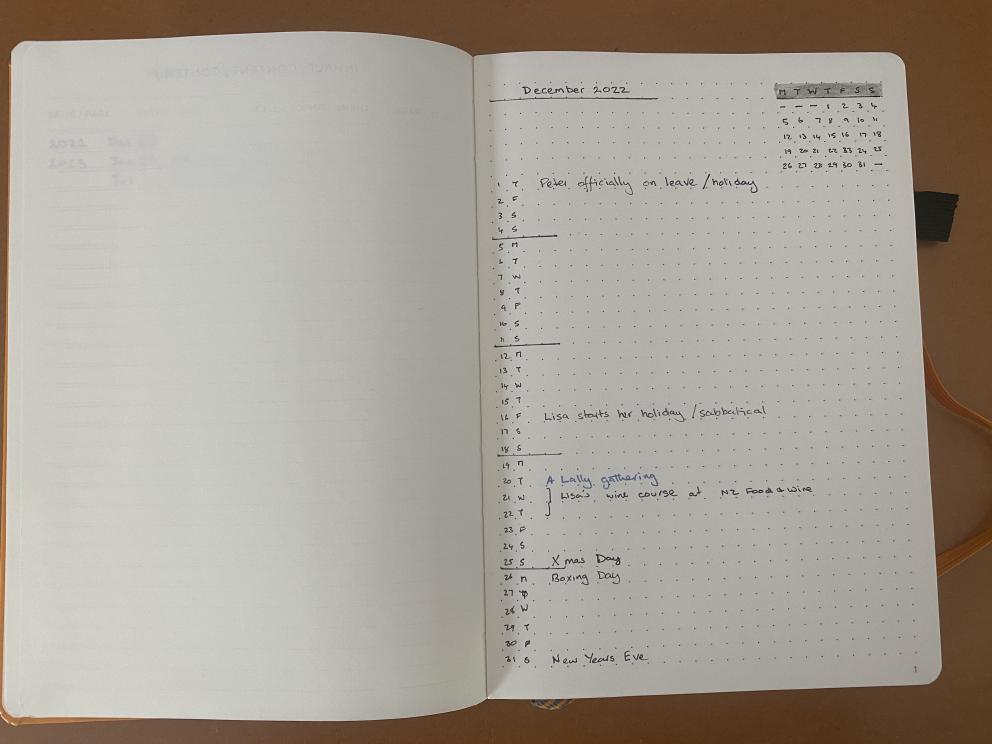 December 2022
M T W T F S S
- - - 1 2 3 4
5 6 7 8 9 10 11
12 13 14 15 16 17 18
19 20 21 22 23 24 25
26 27 28 29 30 31 -
1 T Peter officially on leave / holiday
2 F
3 S
4 S
5 M
6 T
7 W
8 T
9 F
10 S
11 S
12 M
13 T
14 W
15 T
16 F Lisa starts her holiday / sabbatical
17 S
18 S
19 M
20 T A Lally gathering
21 W } Lisa's wine course at NZ Food & Wine
22 T
23 F
24 S
25 S Xmas Day
26 M Boxing Day
27 T
28 W
29 T
30 F
31 S New Years Eve
1